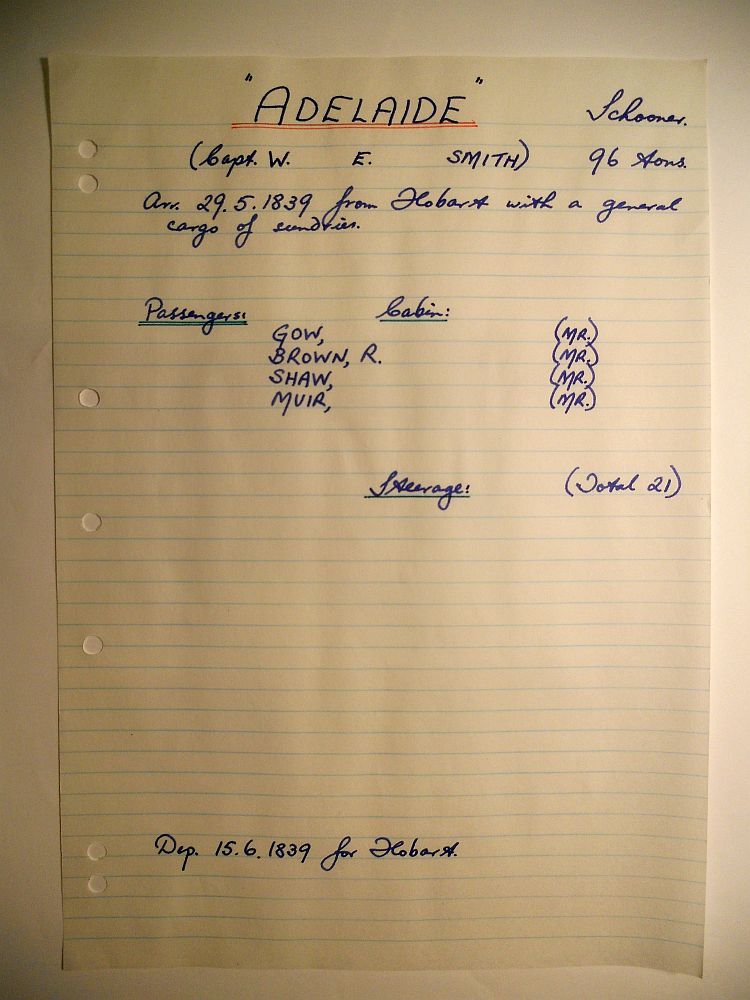 "ADELAIDE" Schooner.
(Capt. W. E. SMITH) 96 tons.
Arr. 29.5.1839 from Hobart with a general
cargo of sundries.
Passengers: Cabin:
GOW, (MR.)
BROWN, R. (MR.)
SHAW, (MR.)
MUIR, (MR.)
Steerage: (Total 21)
Dep. 15.6.1839 for Hobart.